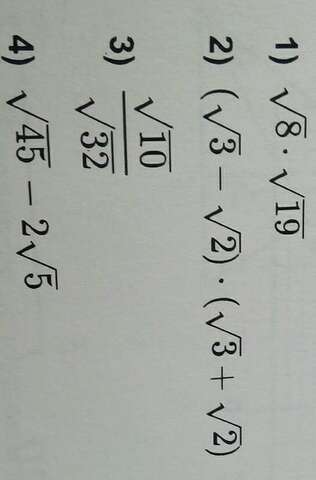 1) √8 · √19
2) (√3 − √2) · (√3 + √2)
3) √10 / √32
4) √45 − 2√5